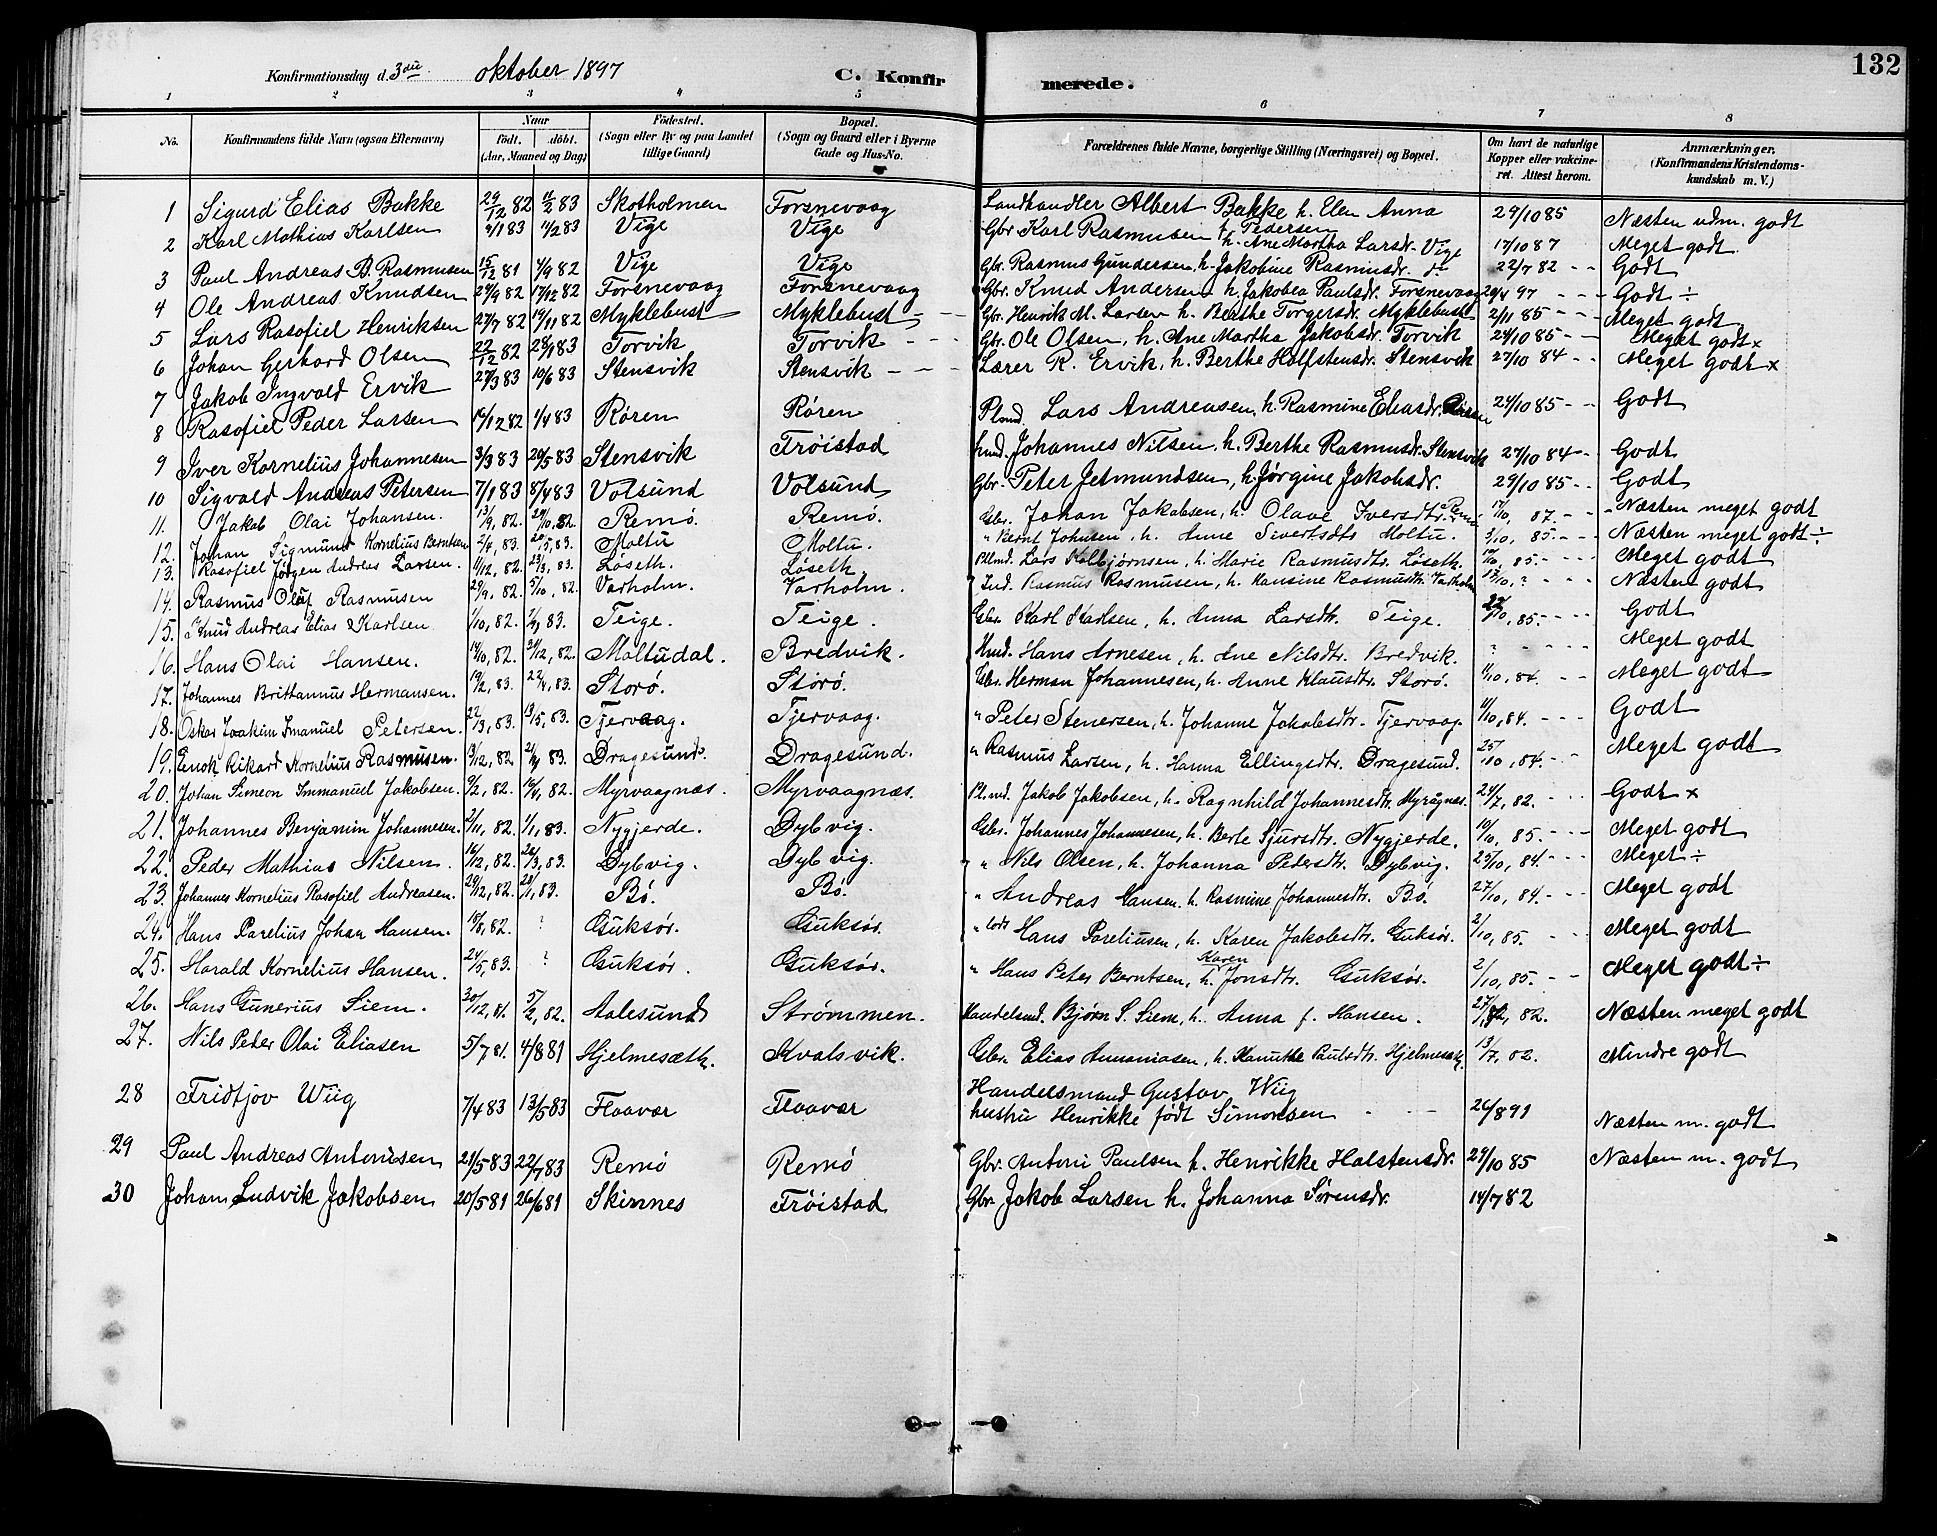 132
Konfirmationsdag d. 3die oktober 1897 C. Konfir merede.
1 2 3 4 5 6 7 8
No. Konfirmandens fulde Navn (ogsaa Efternavn) Naar født. døbt. (Aar, Maaned og Dag) Fødested. (Sogn eller By og paa Landet tillige Gaard) Bopæl. (Sogn og Gaard eller i Byerne Gade og Hus-No. Forældrenes fulde Navne, borgerlige Stilling (Næringsvei) og Bopæl. Om havt de naturlige Kopper eller vakcineret. Attest herom. Anmærkninger. (Konfirmandens Kristendomskundskab m. V.)
1 Sigurd Elias Bakke 29/12 82 11/2 83 Skotholmen Forsnevaag Landhandler Albert Bakke h. Elen Anna f. Pedersen 29/10 85 Næsten udm. godt
2 Karl Mathias Karlsen 9/1 83 11/2 83 Vige Vige Gbr. Karl Rasmusen h. Ane Martha Larsdr. Vige 17/10 87 Meget godt
3 Paul Andreas B. Rasmusen 15/12 81 4/9 82 Vige Vige Gbr. Rasmus Gundersen, h. Jakobine Rasmusdr. 22/7 82 - - Godt
4 Ole Andreas Knudsen 24/9 82 17/12 82 Forsnevaag Forsnevaag Gbr. Knud Andersen h. Jakobea Paulsdr. Forsnevaag 97 - - - Godt ÷
5 Lars Rasofiel Henriksen 27/7 82 19/11 82 Myklebust Myklebust - - Gbr. Henrik M. Larsen h. Berthe Torgersdr. Myklebust 2/11 85 - - - Meget godt
6 Johan Gerhard Olsen 22/12 82 28/1 83 Torvik Torvik - - - Gbr. Ole Olsen, h. Ane Martha Jakobsdr. Torvik 24/10 85 - - Meget godt x
7 Jakob Ingvald Ervik 27/3 83 10/6 83 Stensvik Stensvik - - - Lærer R. Ervik, h. Berthe Holfstensdr. Stensvik 27/10 84 - - Meget godt x
8 Rasofiel Peder Larsen 14/12 82 1/4 83 Røren Røren Plmd. Lars Andreasen, h. Rasmine Eliasdr. Røren 24/10 85 - - Godt
9 Iver Kornelius Johannesen 3/3 83 20/5 83 Stensvik Trøistad hmd. Johannes Nilsen, h. Berthe Rasmusdr. Stensvik 27/10 84 - - Godt
10 Sigvald Andreas Petersen 7/1 83 8/4 83 Volsund Volsund Gbr. Peter Jetmundsen, h. Jørgine Jakobsdr. 29/10 85 - - Godt
11. Jakob Olai Johansen. 13/9, 82. 29/10, 82. Remø. Remø. Gbr. Johan Jakobsen, h. Olave Iversdtr. Remø 17/10, 87 - - Næsten meget godt
12. Johan Sigmund Kornelius Berntsen 2/4, 83. 20/5, 83. Moltu Moltu. " Bernt Johnsen, h. Anne Sivertsdtr Moltu. 3/10, 85. - - - Næsten meget godt ÷
13. Rasofiel Jørgen Andreas Larsen. 11/12, 82. 23/3, 83. Løseth. Løseth. Plmd. Lars Kolbjørnsen, h. Marie Rasmusdtr. Løseth. 85. - - - Meget godt
14. Rasmus Oluf Rasmusen 29/9, 82. 5/10, 82. Varholm. Varholm. Ind. Rasmus Rasmusen, h. Hansine Rasmusdtr. Varholm ? - - - Næsten godt
15. Knud Andreas Elias Karlsen 1/10, 82. 1/1, 83. Teige. Teige. Gbr. Karl Karlsen, h. Anna Larsdtr. Teige. 22/10, 85. - - - Godt
16. Hans Olai Hansen. 14/10, 82. 31/12, 82. Moltudal. Bredvik. Hmd. Hans Arnesen, h. Ane Nilsdtr. Bredvik. ? - - - - Meget godt
17. Johannes Brittannus Hermansen. 19/2, 83. 22/4, 83. Storø. Storø. Gbr. Herman Johannesen, h. Anne Klausdtr. Storø. 11/10, 84. - - - Meget godt
18. Oskar Joakim Imanuel Petersen. 22/3, 83. 13/5, 83. Tjervaag. Tjervaag. " Peter Stenersen, h. Johanne Jakobsdtr. Tjervaag. 11/10, 84. - - - Godt
19. Enok Rikard Kornelius Rasmusen. 13/12, 82 83. Dragesund. Dragesund. " Rasmus Larsen, h. Hanna Ellingsdtr. Dragesund. 25/10, 84. - - Meget godt
20. Johan Simeon Immanuel Jakobsen. 9/2, 82. 10/4, 82. Myrvaagnæs. Myrvaagnæs. Pl.md. Jakob Jakobsen, h. Ragnhild Johannesdtr. 24/7, 82. - - - Godt x
21. Johannes Benjamin Johannesen. 2/11, 82. 1/1, 83. Nygjerde. Dybvig. Gbr. Johannes Johannesen, h. Berte Sjursdtr. Nygjerde. 10/10, 85. - - - Meget godt
22. Peder Mathias Nilsen. 16/12, 82. 26/3, 83. Dybvig. Dybvig. " Nils Olsen, h. Johanna Petersdtr. Dybvig. 25/10, 84. - - - Meget ÷
23. Johannes Kornelius Rasofiel Andreasen. 29/12, 82. 28/1, 83. Bø. Bø. " Andreas Hansen. h. Rasmine Johannesdtr. Bø. 27/10, 84. - - - Meget godt
24. Hans Parelius Johan Hansen. 10/8, 82. ? Guksør. Guksør. " Hans Pareliusen, h. Karen Jakobsdtr. Guksør. 2/10, 85. - - Meget godt
25. Harald Kornelius Hansen. 24/5, 83. ? Guksør. Guksør. " Hans Peter Berntsen, h. Karen Jonsdtr. Guksør. 2/10, 85. - - Meget godt ÷
26. Hans Gunerius Siem. 30/12, 81. 5/2, 82. Aalesund Strømmen. Handelsmd. Bjørn S. Siem, h. Anna f. Hansen. 82. Næsten meget godt
27. Nils Peter Olai Eliasen 5/7 81. 4/8 81 Hjelmesæth. Kvalsvik. Gbr. Elias Annaniasen, h. Kanutte Paulsdtr. Hjelmesæth. 13/7, 82. Mindre godt
28 Fridtjov Wiig 7/4 83 13/5 83 Flaavær Flaavær Handelsmand Gustav Wiig hustru Henrikke født Simonsen - - 26/8 91 Næsten m. godt
29 Paul Andreas Antonisen 21/5 83 22/7 83 Remø Remø Gbr. Antoni Paulsen h. Henrikke Halstensdr. 29/10 85 Næsten m. godt
30 Johan Ludvik Jakobsen 20/5 81 26/6 81 Skinnes Trøistad Gbr. Jakob Larsen h. Johanna Sørensdr. 14/7 82